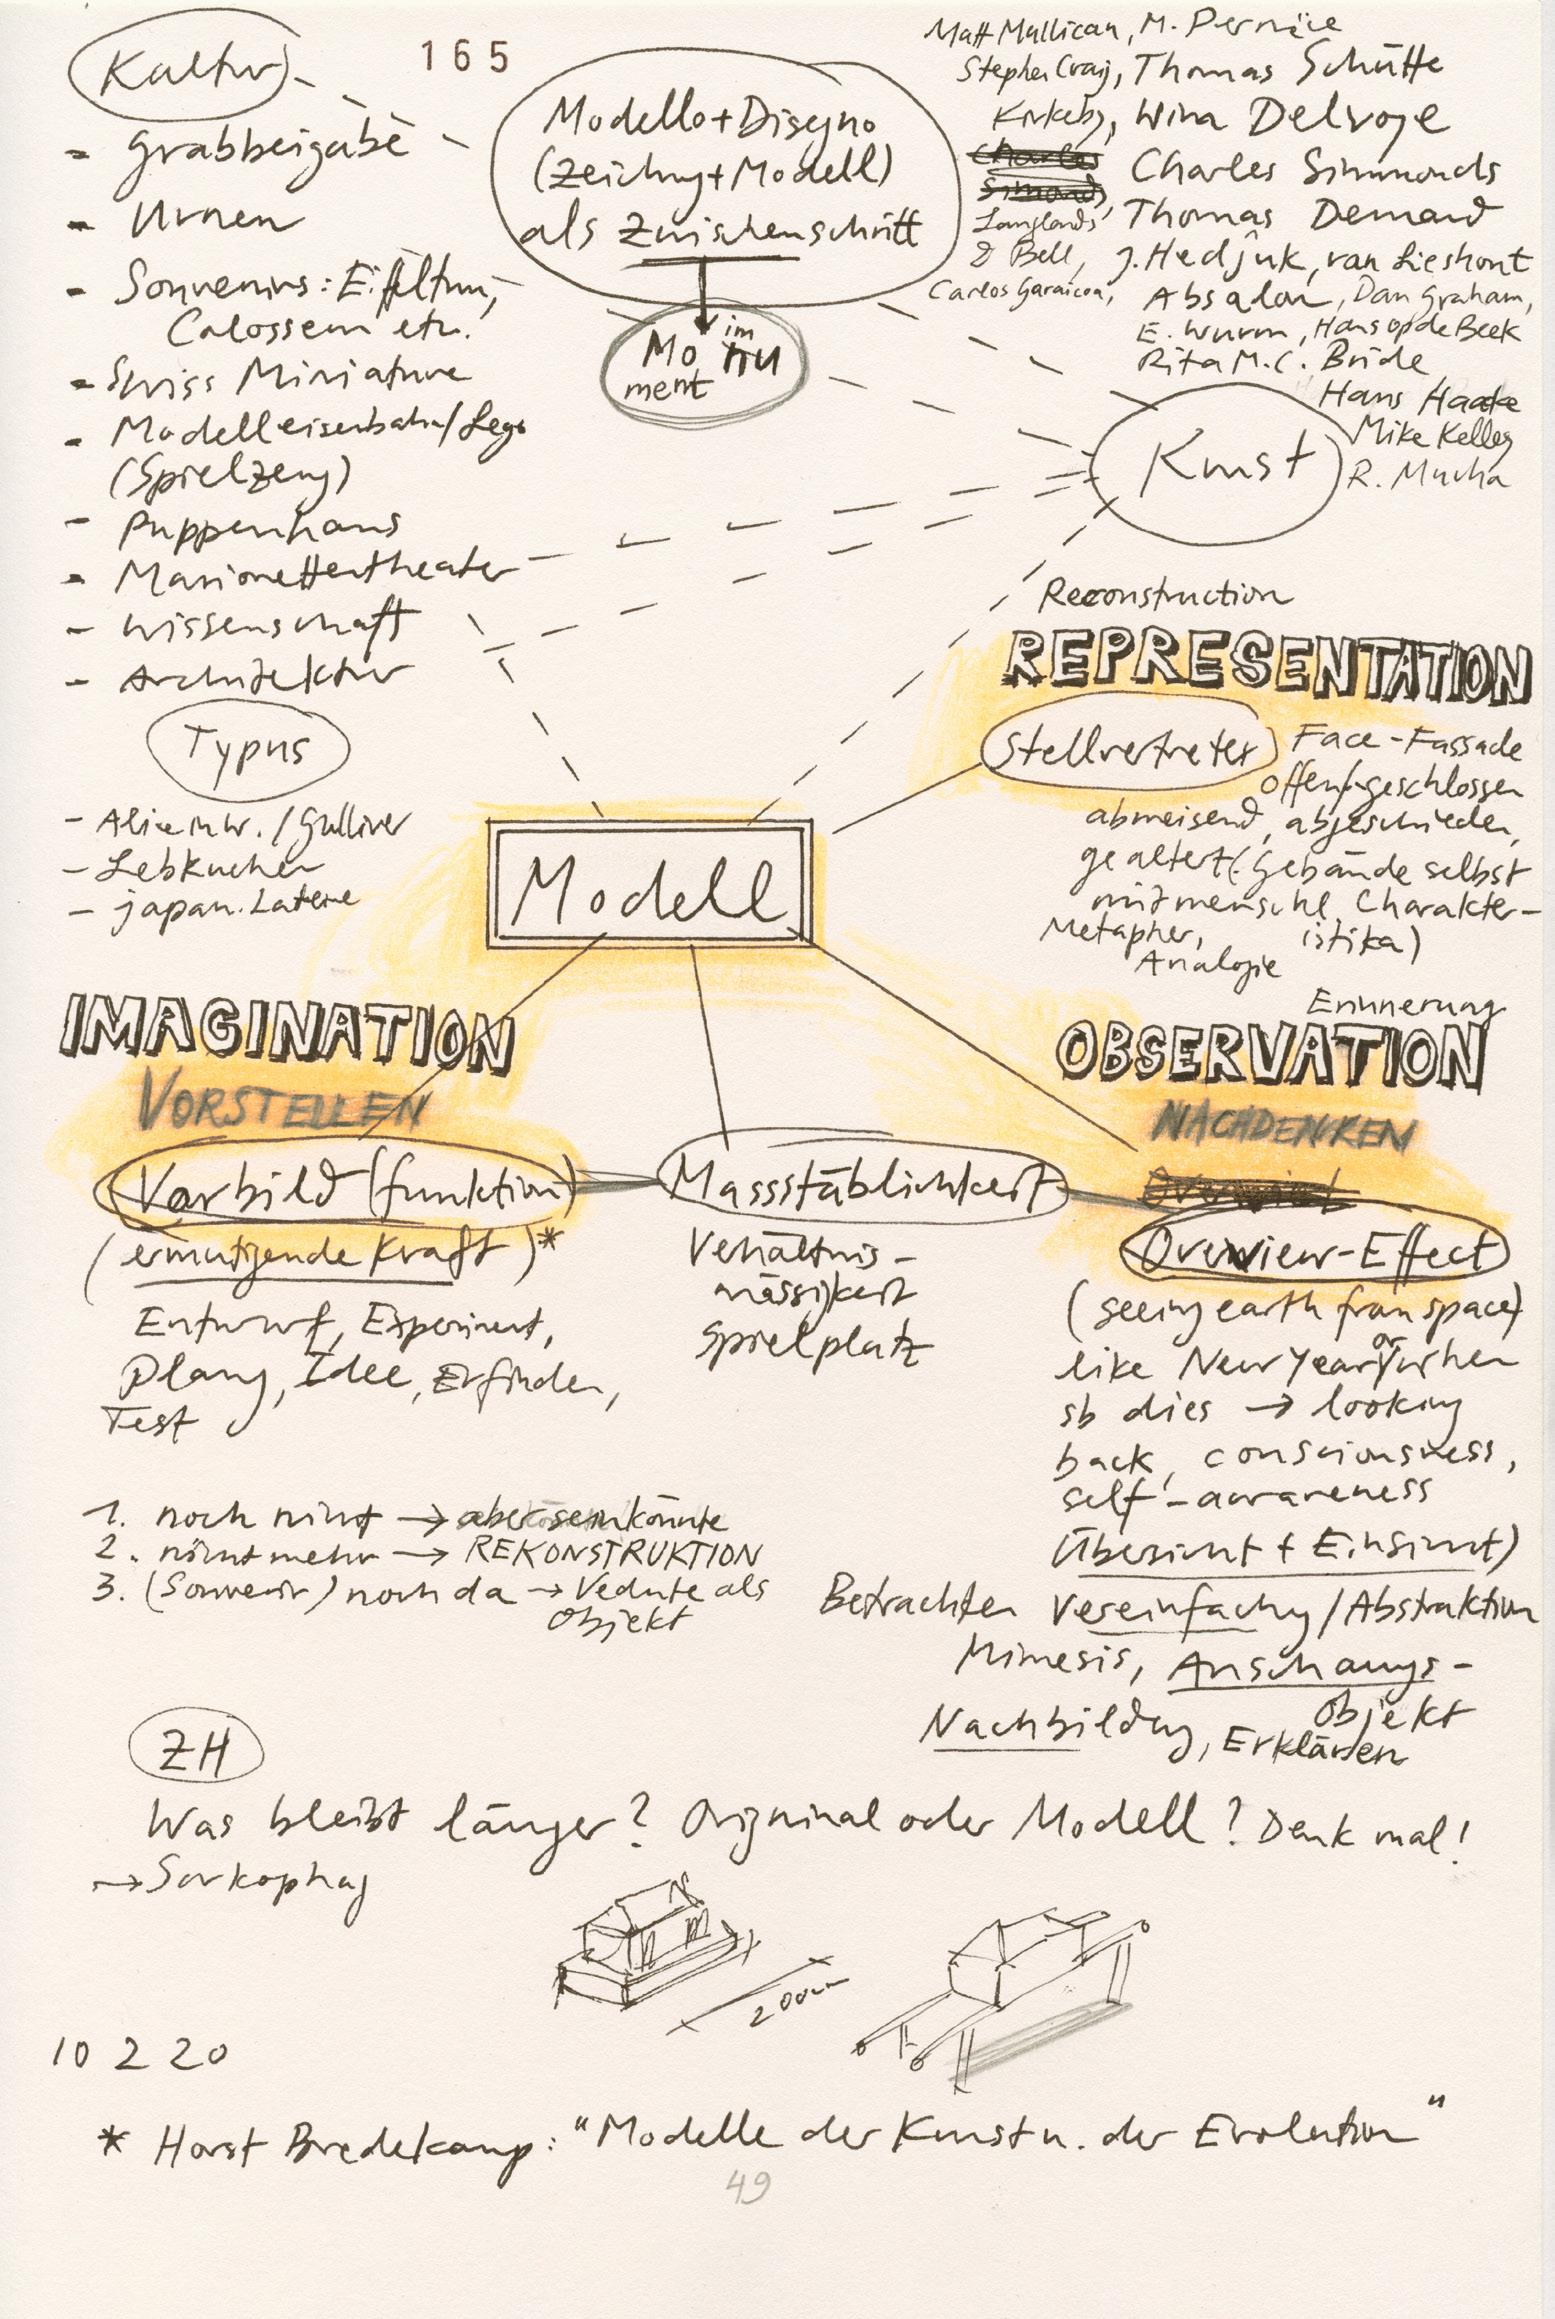 Kultur
165
- Grabbeigabe
- Urnen
- Souvenirs: Eiffelturm,
Colosseum etc.
- Swiss Miniature
- Modelleisenbahn/Lego
(Spielzeug)
- Puppenhaus
- Marionettentheater
- Wissenschaft
- Architektur
Typus
- Alice in W. / Gulliver
- Lebkuchen
- japan. Laterne
Modello + Disegno
(Zeichng + Modell)
als Zwischenschritt
im
Mo
ment
Matt Mullican, M. Pernice
Stephen Craig, Thomas Schütte
Kirkeby, Wim Delvoye
Charles Charles Simmonds
Simonds, Thomas Demand
Langlands
& Bell, J. Hedjuk, van Lieshout
Carlos Garaicoa, Absalon, Dan Graham,
E. Wurm, Hans op de Beek
Rita M.C. Bride
Hans Haake
Mike Kelley
R. Mucha
Kunst
Reconstruction
REPRESENTATION
Stellvertreter Face - Fassade
offen/geschlossen
abweisend, abgeschieden,
gealtert (Gebäude selbst
mit menschl. Charakter-
istika)
Metapher,
Analogie
Modell
IMAGINATION
VORSTELLEN
Vorbild (funktion)
(ermutigende Kraft)*
Entwurf, Experiment,
Plang, Idee, Erfinden,
Test
Massstäblichkeit
Verhältnis-
mässigkeit
Spielplatz
Erinnerung
OBSERVATION
NACHDENKEN
Overview-Effect
(seeing earth from space)
like New Year or when
sb dies → looking
back, consciousness,
self-awareness
Übersicht + Einsicht)
Betrachten Vereinfachg/Abstraktion
Mimesis, Anschaugs-
objekt
Nachbildg, Erklären
1. noch nicht → aber sein könnte
2. nicht mehr → REKONSTRUKTION
3. (Souvenir) noch da → Vedute als
Objekt
ZH
Was bleibt länger? Original oder Modell? Denk mal!
→ Sarkophag
200cm
10 2 20
* Horst Bredekamp: "Modelle der Kunst u. der Evolution"
49